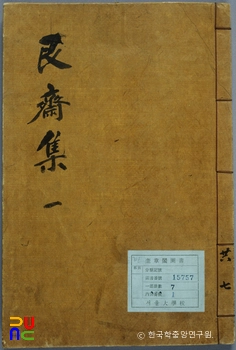 艮齋集 一
共七
奎章閣圖書
15757
7
1
서울大學校
© 한국학중앙연구원